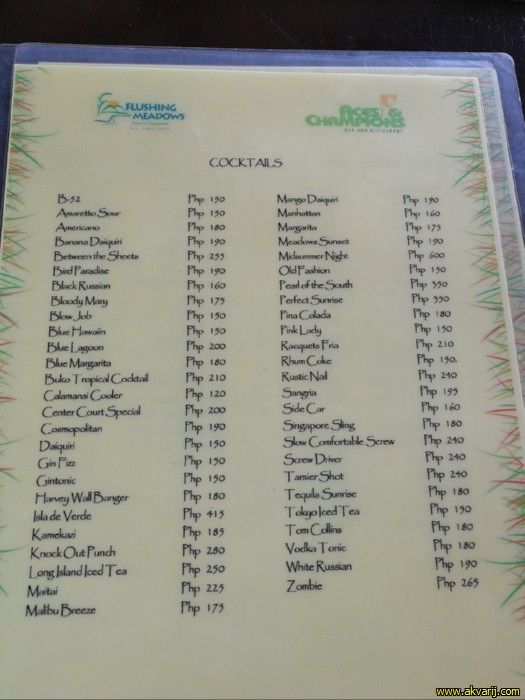 FLUSHING
MEADOWS
ACES &
CHAMPIONS
BAR AND RESTAURANT
COCKTAILS
B-52 Php 150
Amaretto Sour Php 150
Americano Php 180
Banana Daiquiri Php 190
Between the Sheets Php 255
Bird Paradise Php 190
Black Russian Php 160
Bloody Mary Php 175
Blow Job Php 150
Blue Hawaiin Php 150
Blue Lagoon Php 200
Blue Margarita Php 180
Buko Tropical Cocktail Php 210
Calamansi Cooler Php 120
Center Court Special Php 200
Cosmopolitan Php 190
Daiquiri Php 150
Gin Fizz Php 150
Gintonic Php 150
Harvey Wall Banger Php 180
Isla de Verde Php 415
Kamekazi Php 185
Knock Out Punch Php 280
Long Island Iced Tea Php 250
Maitai Php 225
Malibu Breeze Php 175
Mango Daiquiri Php 190
Manhattan Php 160
Margarita Php 175
Meadows Sunset Php 190
Midsummer Night Php 600
Old Fashion Php 150
Pearl of the South Php 350
Perfect Sunrise Php 550
Pina Colada Php 180
Pink Lady Php 150
Racquets Fria Php 210
Rhum Coke Php 150.
Rustic Nail Php 240
Sangria Php 195
Side Car Php 160
Singapore Sling Php 180
Slow Comfortable Screw Php 240
Screw Driver Php 240
Tarsier Shot Php 240
Tequila Sunrise Php 180
Tokyo Iced Tea Php 150
Tom Collins Php 180
Vodka Tonic Php 180
White Russian Php 190
Zombie Php 265
www.akvarij.com